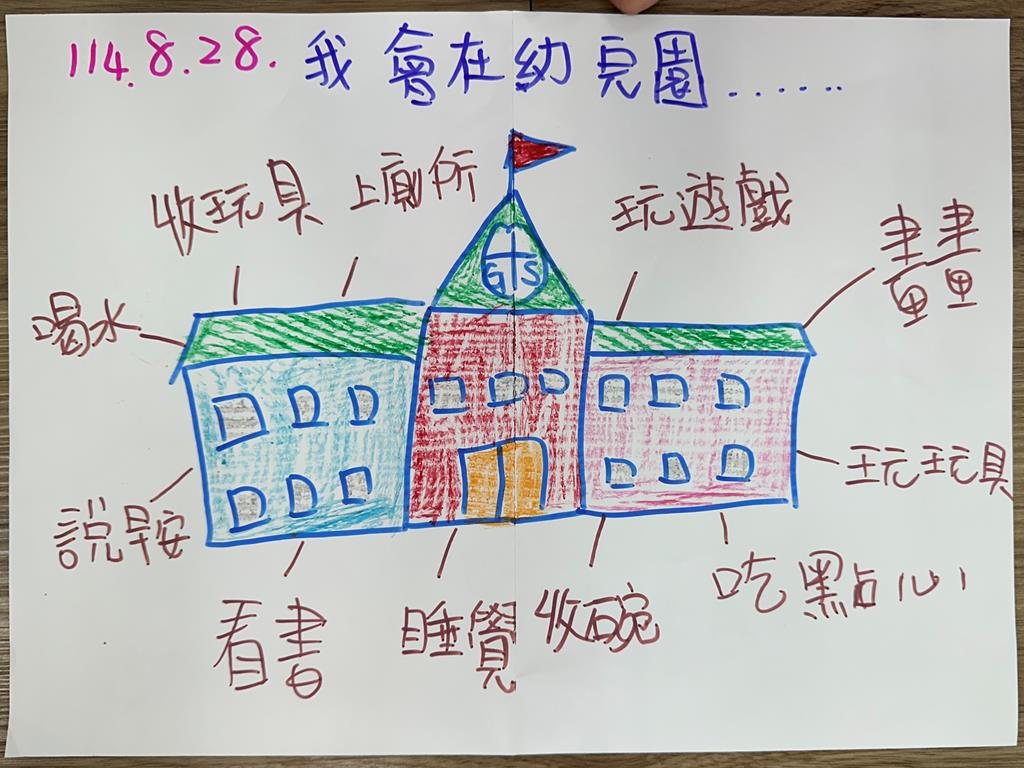 114.8.28. 我會在幼兒園......
收玩具
上廁所
玩遊戲
畫畫
喝水
GS
玩玩具
說早安
吃點心
看書
睡覺
收碗